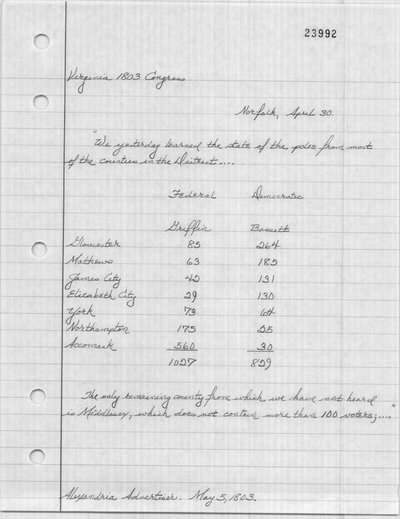 23992
Virginia 1803 Congress
Norfolk, April 30.
"We yesterday learned the state of the poles from most
of the counties in the District....
Federal Democratic
Griffin Bassett
Gloucester 85 264
Mathews 63 185
James City 42 131
Elizabeth City 29 130
York 73 64
Northampton 175 25
Accomack 560 30
1027 829
The only remaining county from which we have not heard
is Middlesex, which does not contain more than 100 voters;...."
Alexandria Advertiser. May 5, 1803.